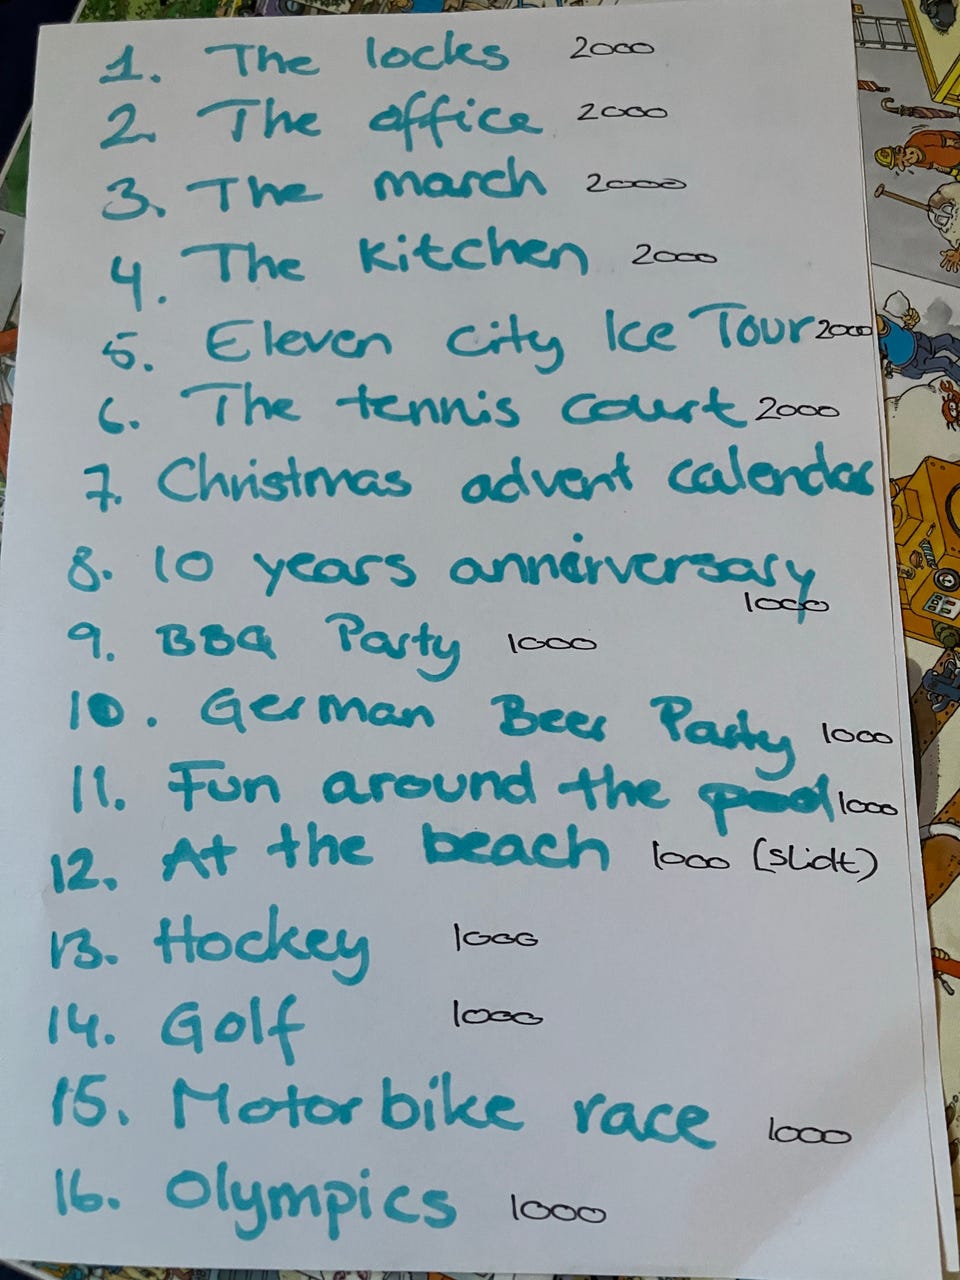 1. The locks 2000
2. The office 2000
3. The march 2000
4. The kitchen 2000
5. Eleven city Ice Tour 2000
6. The tennis court 2000
7. Christmas advent calendar
8. 10 years annirversary
1000
9. BBQ Party 1000
10. German Beer Party 1000
11. Fun around the pool 1000
12. At the beach 1000 (slidt)
13. Hockey 1000
14. Golf 1000
15. Motor bike race 1000
16. Olympics 1000